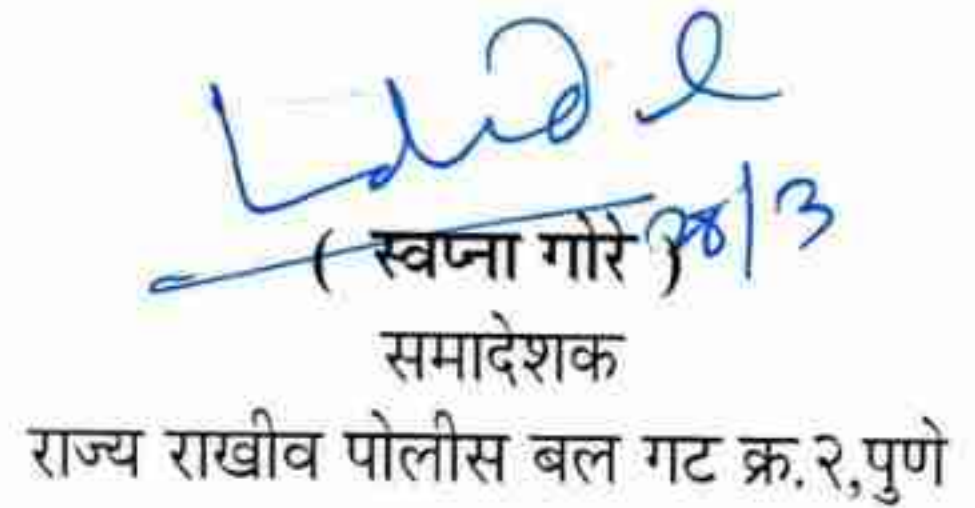 28/3
( स्वप्ना गोरे )
समादेशक
राज्य राखीव पोलीस बल गट क्र.२,पुणे